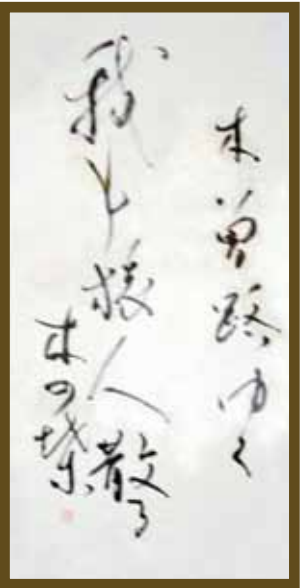 木曽路ゆく
我も旅人散る
木の葉